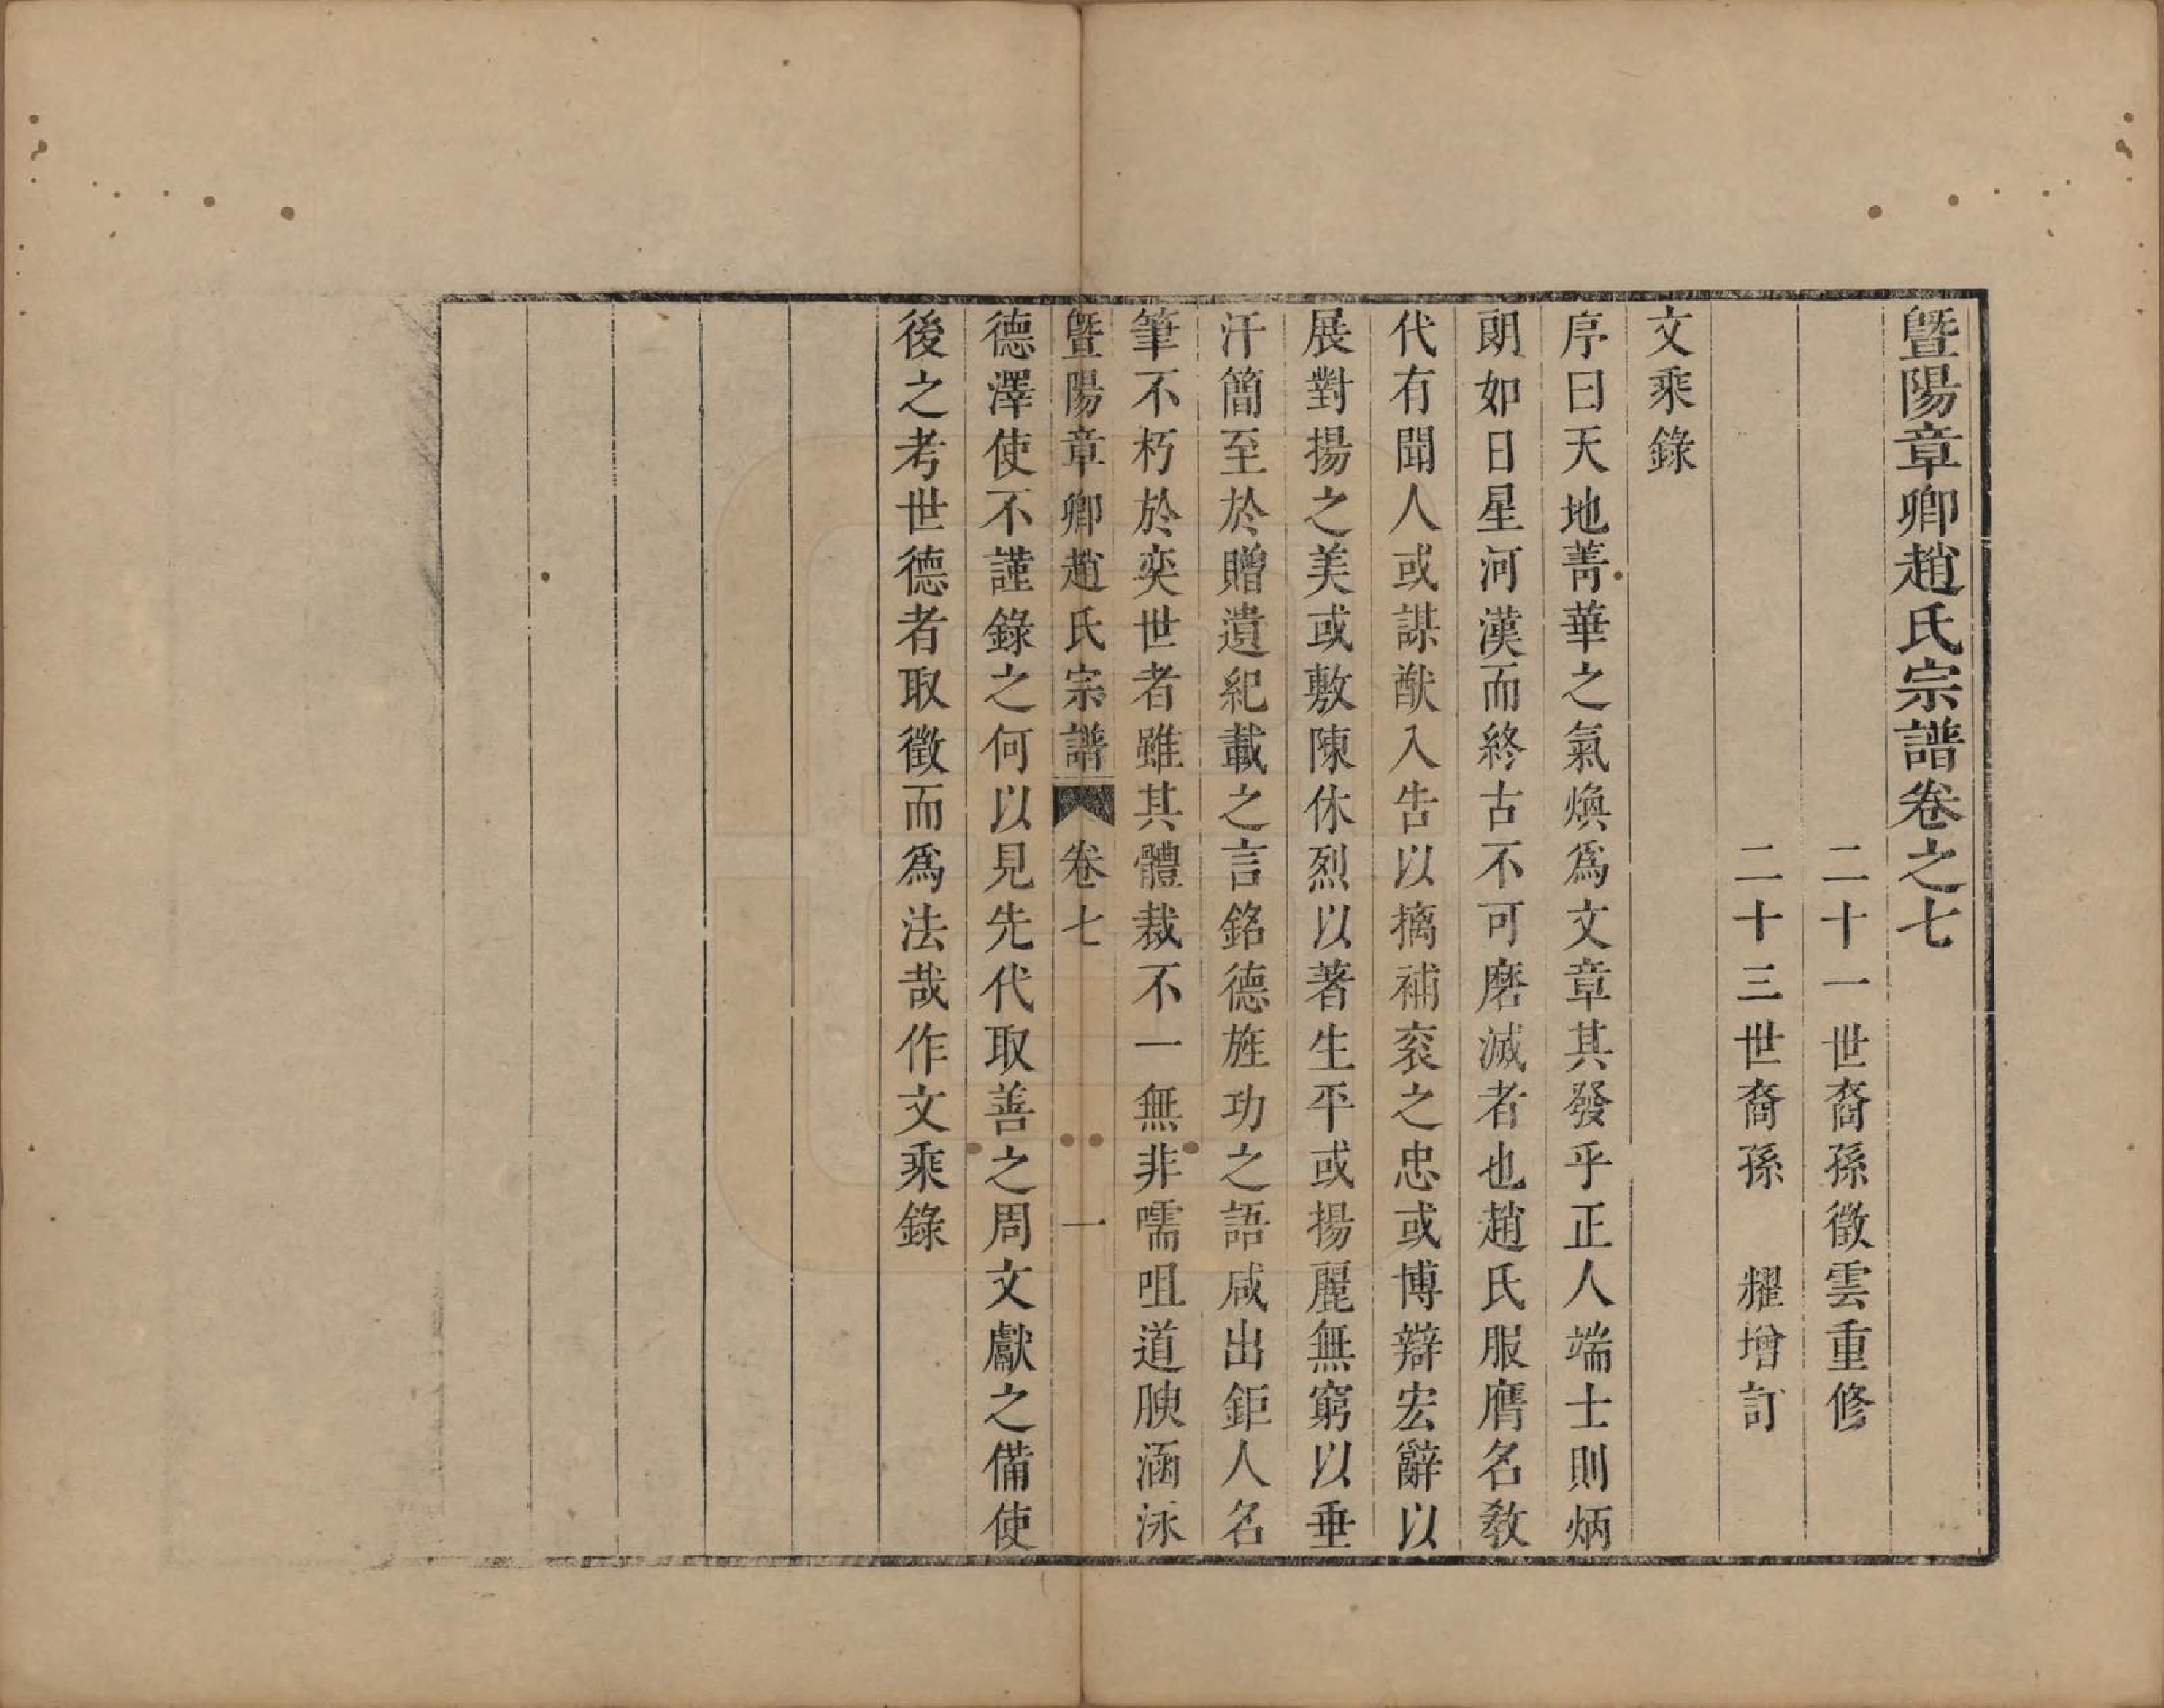 暨陽章卿趙氏宗譜卷之七
二十一世裔孫徵雲重修
二十三世裔孫　耀增訂
文乘錄
序曰天地菁華之氣煥爲文章其發乎正人端士則炳
朗如日星河漢而終古不可磨滅者也趙氏服膺名敎
代有聞人或謀猷入告以摛補衮之忠或博辯宏辭以
展對揚之美或敷陳休烈以著生平或揚麗無窮以垂
汗簡至於贈遺紀載之言銘德旌功之語咸出鉅人名
筆不朽於奕世者雖其體裁不一無非嚅咀道腴涵泳
暨陽章卿趙氏宗譜　卷七　一
德澤使不謹錄之何以見先代取善之周文獻之備使
後之考世德者取徵而爲法哉作文乘錄